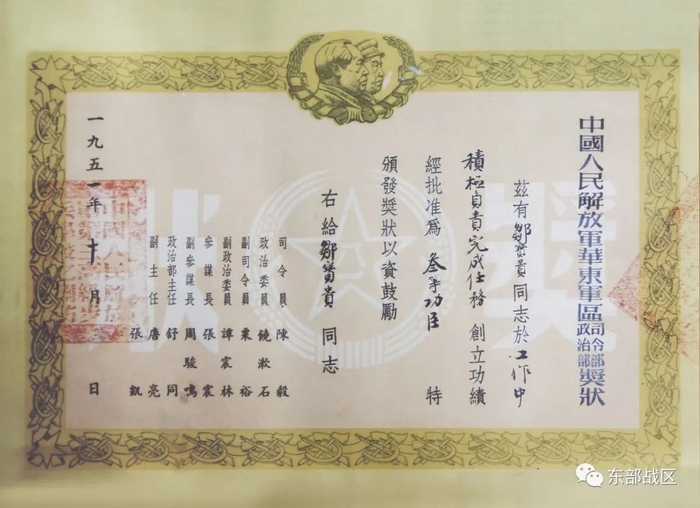 中國人民解放軍華東軍區司令部政治部獎狀
茲有鄒富貴同志於工作中
積極自責完成任務 創立功績
經批准為 叁等功臣 特
頒發獎狀以資鼓勵
右給鄒富貴同志
司令員 陳毅
政治委員 饒漱石
副司令員 粟裕
副政治委員 譚震林
參謀長 張震
副參謀長 周駿鳴
政治部主任 舒同
副主任 唐亮
張凱
一九五一年十月 日
獎狀
东部战区